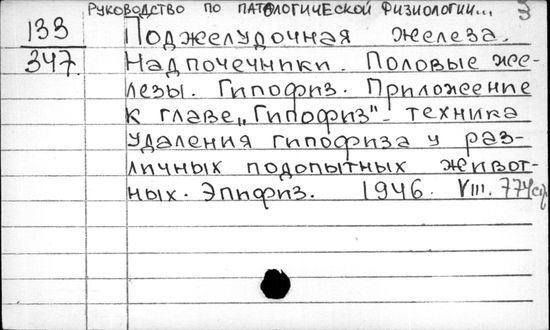 Руководство по патологической физиологии...
3
133
347
Поджелудочная железа.
Надпочечники. Половые же-
лезы. Гипофиз. Приложение
к главе „Гипофиз" - техника
удаления гипофиза у раз-
личных подопытных живот-
ных. Эпифиз. 1946. VIII. 774 стр.